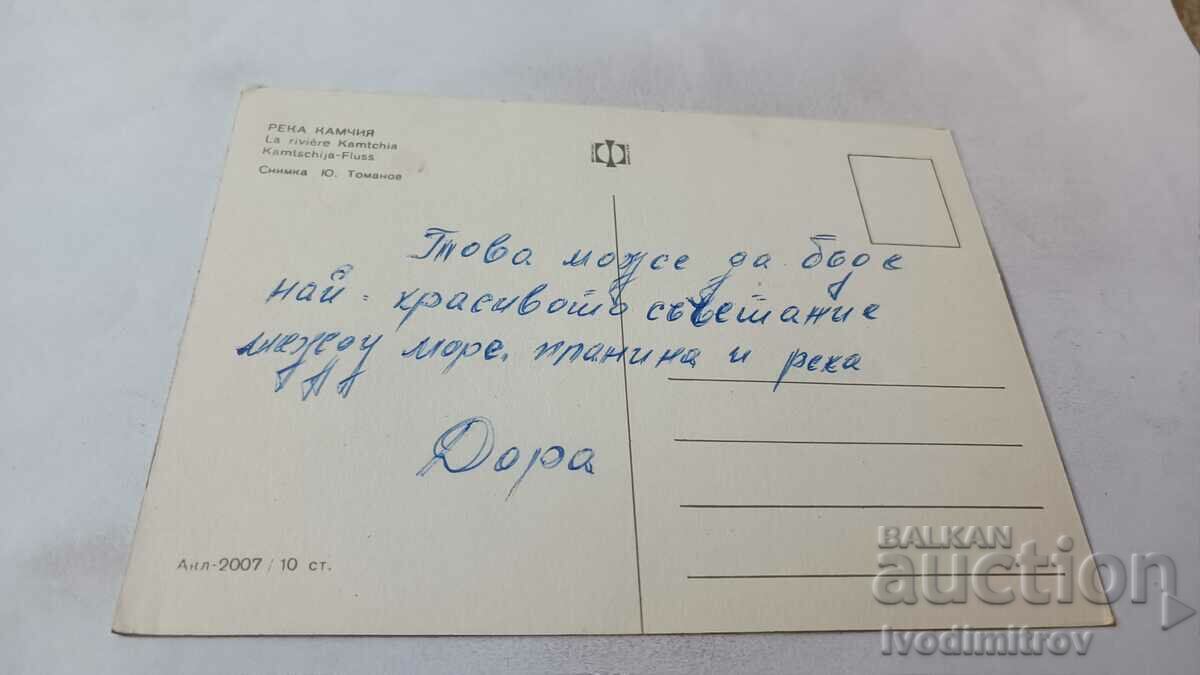 РЕКА КАМЧИЯ
La rivière Kamtchia
Kamtschija-Fluss
Снимка Ю. Томанов
Това може да бъде
най-красивото съчетание
между море, планина и река
Дора
Акл-2007 / 10 ст.
BALKAN
auction
Ivodimitrov